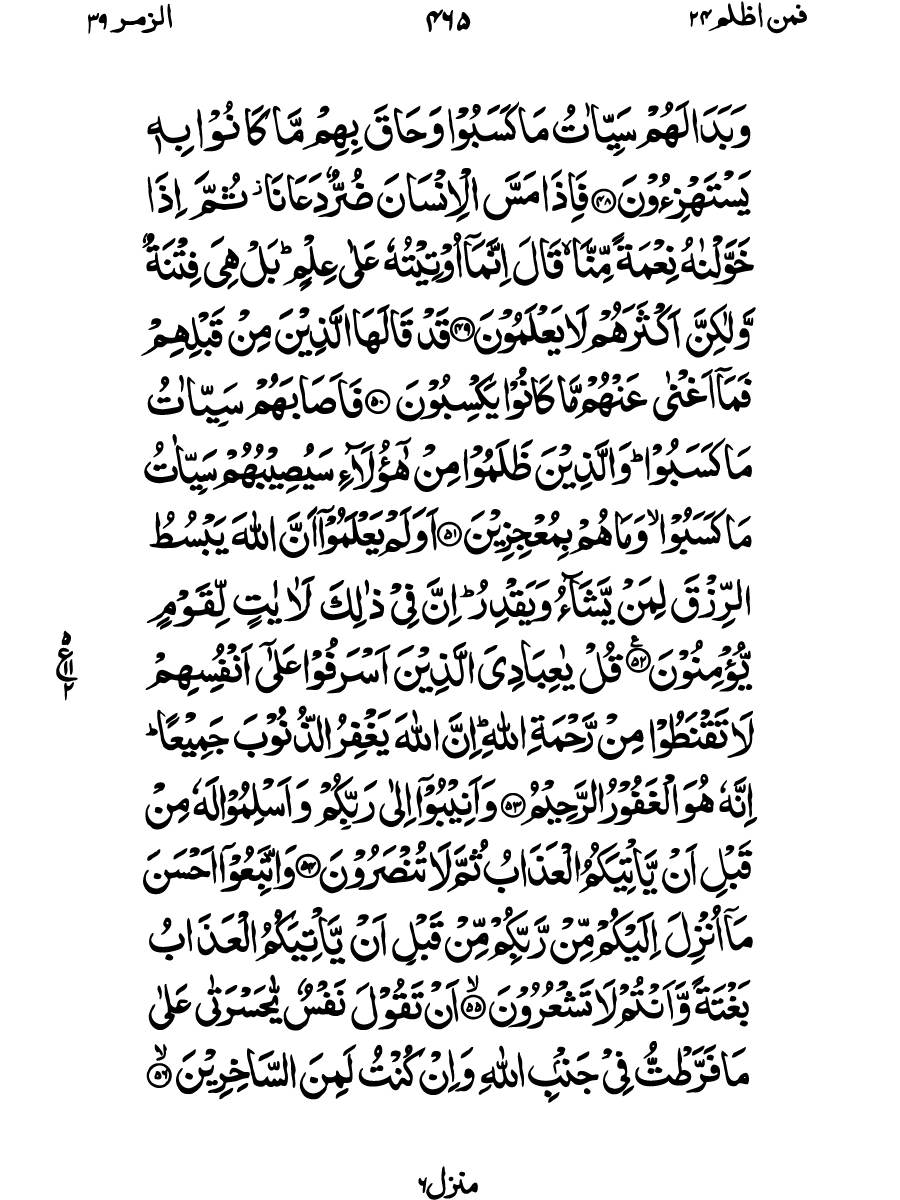 فمن اظلم ۲۴
۴۶۵
الزمر ۳۹
وَبَدَا لَهُمْ سَيِّاٰتُ مَا كَسَبُوْا وَحَاقَ بِهِمْ مَّا كَانُوْا بِهٖ
يَسْتَهْزِءُوْنَ ﴿۴۸﴾ فَاِذَا مَسَّ الْاِنْسَانَ ضُرٌّ دَعَانَا ۡ ثُمَّ اِذَا
خَوَّلْنٰهُ نِعْمَةً مِّنَّا ۙ قَالَ اِنَّمَاۤ اُوْتِيْتُهٗ عَلٰى عِلْمٍ ؕ بَلْ هِىَ فِتْنَةٌ
وَّلٰكِنَّ اَكْثَرَهُمْ لَا يَعْلَمُوْنَ ﴿۴۹﴾ قَدْ قَالَهَا الَّذِيْنَ مِنْ قَبْلِهِمْ
فَمَاۤ اَغْنٰى عَنْهُمْ مَّا كَانُوْا يَكْسِبُوْنَ ﴿۵۰﴾ فَاَصَابَهُمْ سَيِّاٰتُ
مَا كَسَبُوْا ؕ وَالَّذِيْنَ ظَلَمُوْا مِنْ هٰۤؤُلَآءِ سَيُصِيْبُهُمْ سَيِّاٰتُ
مَا كَسَبُوْا ۙ وَمَا هُمْ بِمُعْجِزِيْنَ ﴿۵۱﴾ اَوَلَمْ يَعْلَمُوْۤا اَنَّ اللّٰهَ يَبْسُطُ
الرِّزْقَ لِمَنْ يَّشَآءُ وَيَقْدِرُ ؕ اِنَّ فِىْ ذٰلِكَ لَاٰيٰتٍ لِّقَوْمٍ
يُّؤْمِنُوْنَ ﴿۵۲﴾ ع قُلْ يٰعِبَادِىَ الَّذِيْنَ اَسْرَفُوْا عَلٰٓى اَنْفُسِهِمْ
۵ ع ۱۱ ۲
لَا تَقْنَطُوْا مِنْ رَّحْمَةِ اللّٰهِ ؕ اِنَّ اللّٰهَ يَغْفِرُ الذُّنُوْبَ جَمِيْعًا ؕ
اِنَّهٗ هُوَ الْغَفُوْرُ الرَّحِيْمُ ﴿۵۳﴾ وَاَنِيْبُوْۤا اِلٰى رَبِّكُمْ وَاَسْلِمُوْا لَهٗ مِنْ
قَبْلِ اَنْ يَّاْتِيَكُمُ الْعَذَابُ ثُمَّ لَا تُنْصَرُوْنَ ﴿۵۴﴾ وَاتَّبِعُوْۤا اَحْسَنَ
مَاۤ اُنْزِلَ اِلَيْكُمْ مِّنْ رَّبِّكُمْ مِّنْ قَبْلِ اَنْ يَّاْتِيَكُمُ الْعَذَابُ
بَغْتَةً وَّاَنْتُمْ لَا تَشْعُرُوْنَ ۙ﴿۵۵﴾ اَنْ تَقُوْلَ نَفْسٌ يّٰحَسْرَتٰى عَلٰى
مَا فَرَّطْتُّ فِىْ جَنْۢبِ اللّٰهِ وَاِنْ كُنْتُ لَمِنَ السَّاخِرِيْنَ ۙ﴿۵۶﴾
منزل ۶